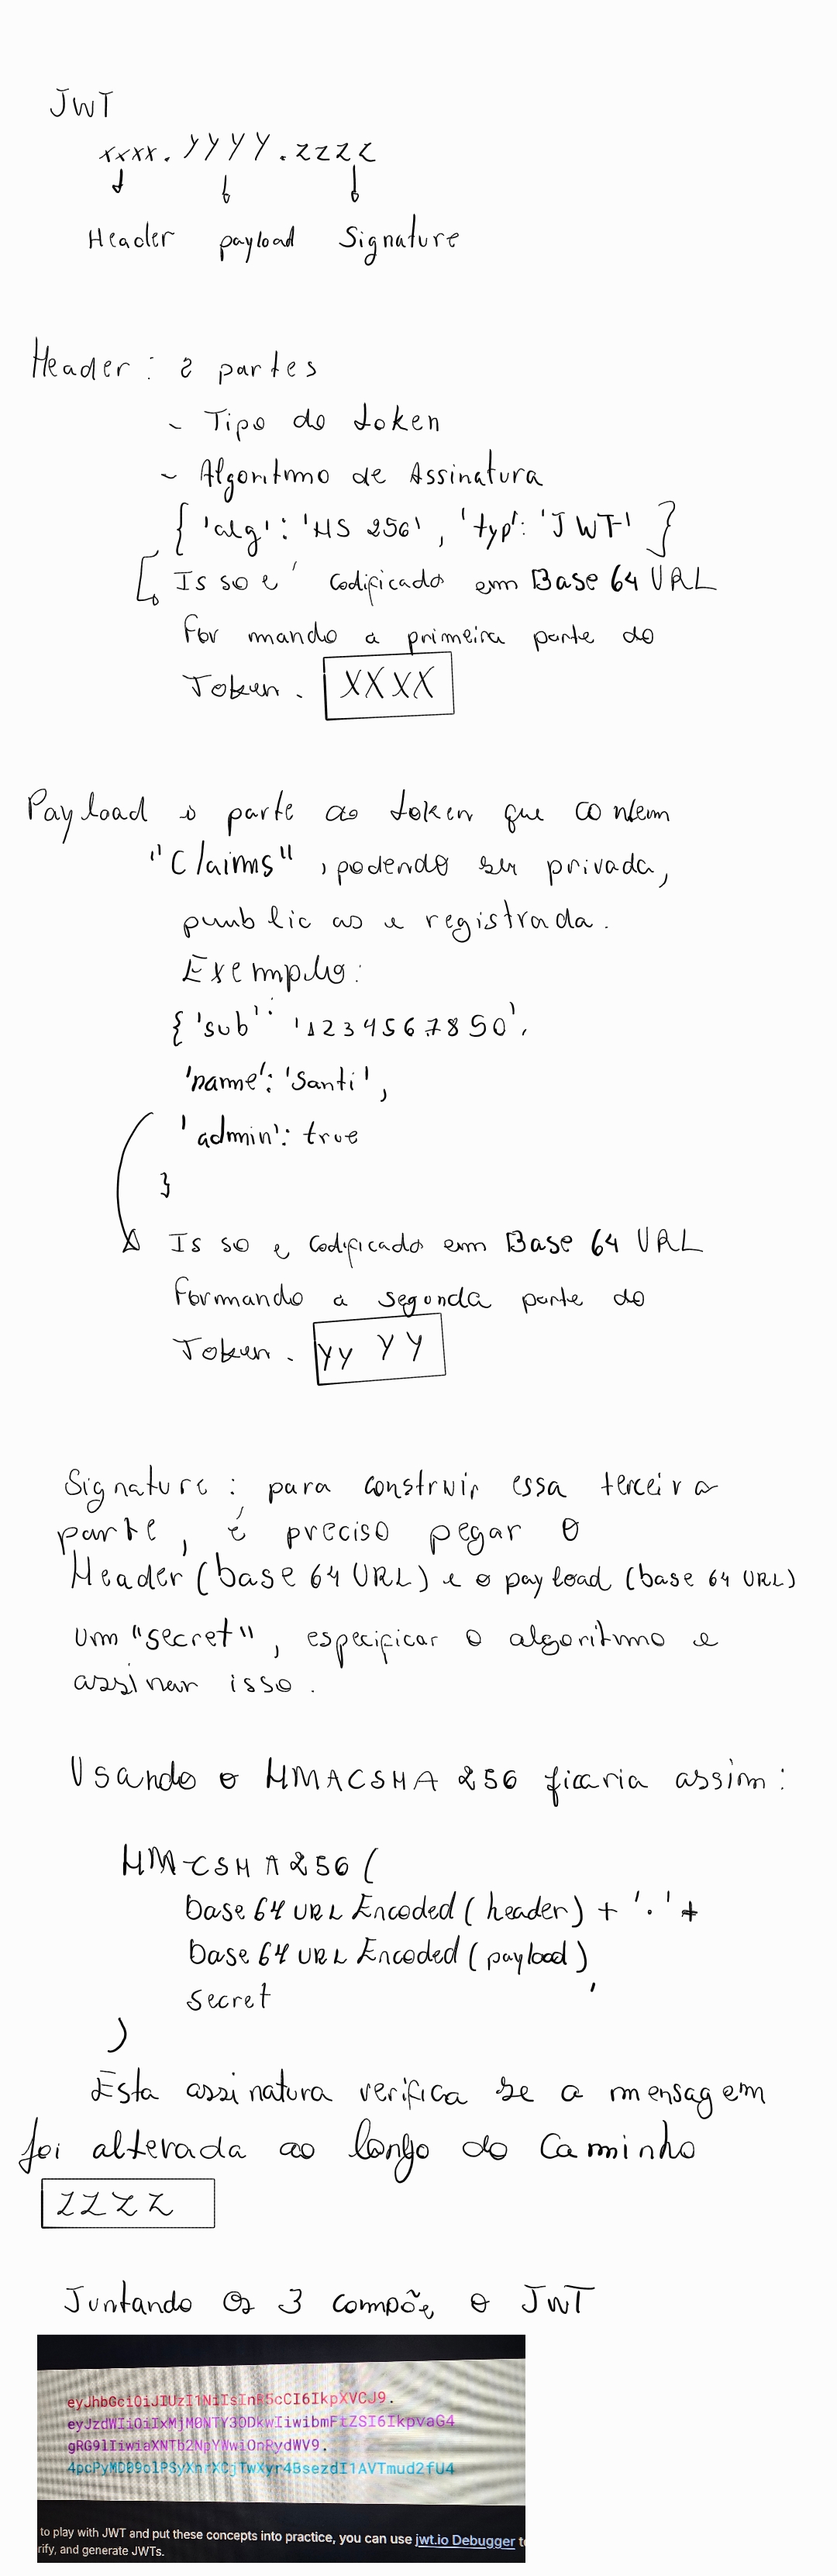 JWT
xxxx.yyyy.zzzz
Header payload Signature
Header: 2 partes
- Tipo do token
- Algoritmo de Assinatura
{'alg': 'HS 256', 'typ': 'JWT'}
Isso é codificado em Base 64 URL
formando a primeira parte do
Token. XXXX
Payload é parte do token que contem
"Claims", podendo ser privada,
publicas e registrada.
Exemplo:
{'sub': '1234567850',
'name': 'Santi',
'admin': true
}
Isso e codificado em Base 64 URL
formando a segonda parte do
Token. yyyy
Signature: para construir essa terceira
parte, é preciso pegar o
Header (base 64 URL) e o payload (base 64 URL)
um "secret", especificar o algoritmo e
assinar isso.
Usando o HMACSHA 256 ficaria assim:
HMACSHA256(
base 64 URL Encoded(header) + '.' +
base 64 URL Encoded(payload),
secret
)
Esta assinatura verifica se a mensagem
foi alterada ao longo do caminho
ZZZZ
Juntando os 3 compõe o JWT
eyJhbGciOiJIUzI1NiIsInR5cCI6IkpXVCJ9.
eyJzdWIiOiIxMjM0NTY3ODkwIiwibmFtZSI6IkpvaG4
gRG9lIiwiaXNTb2NpYWwiOnRydWV9.
4pcPyMD09olPSyXnrXCjTwXyr4BsezdI1AVTmud2fU4
to play with JWT and put these concepts into practice, you can use jwt.io Debugger t
rify, and generate JWTs.